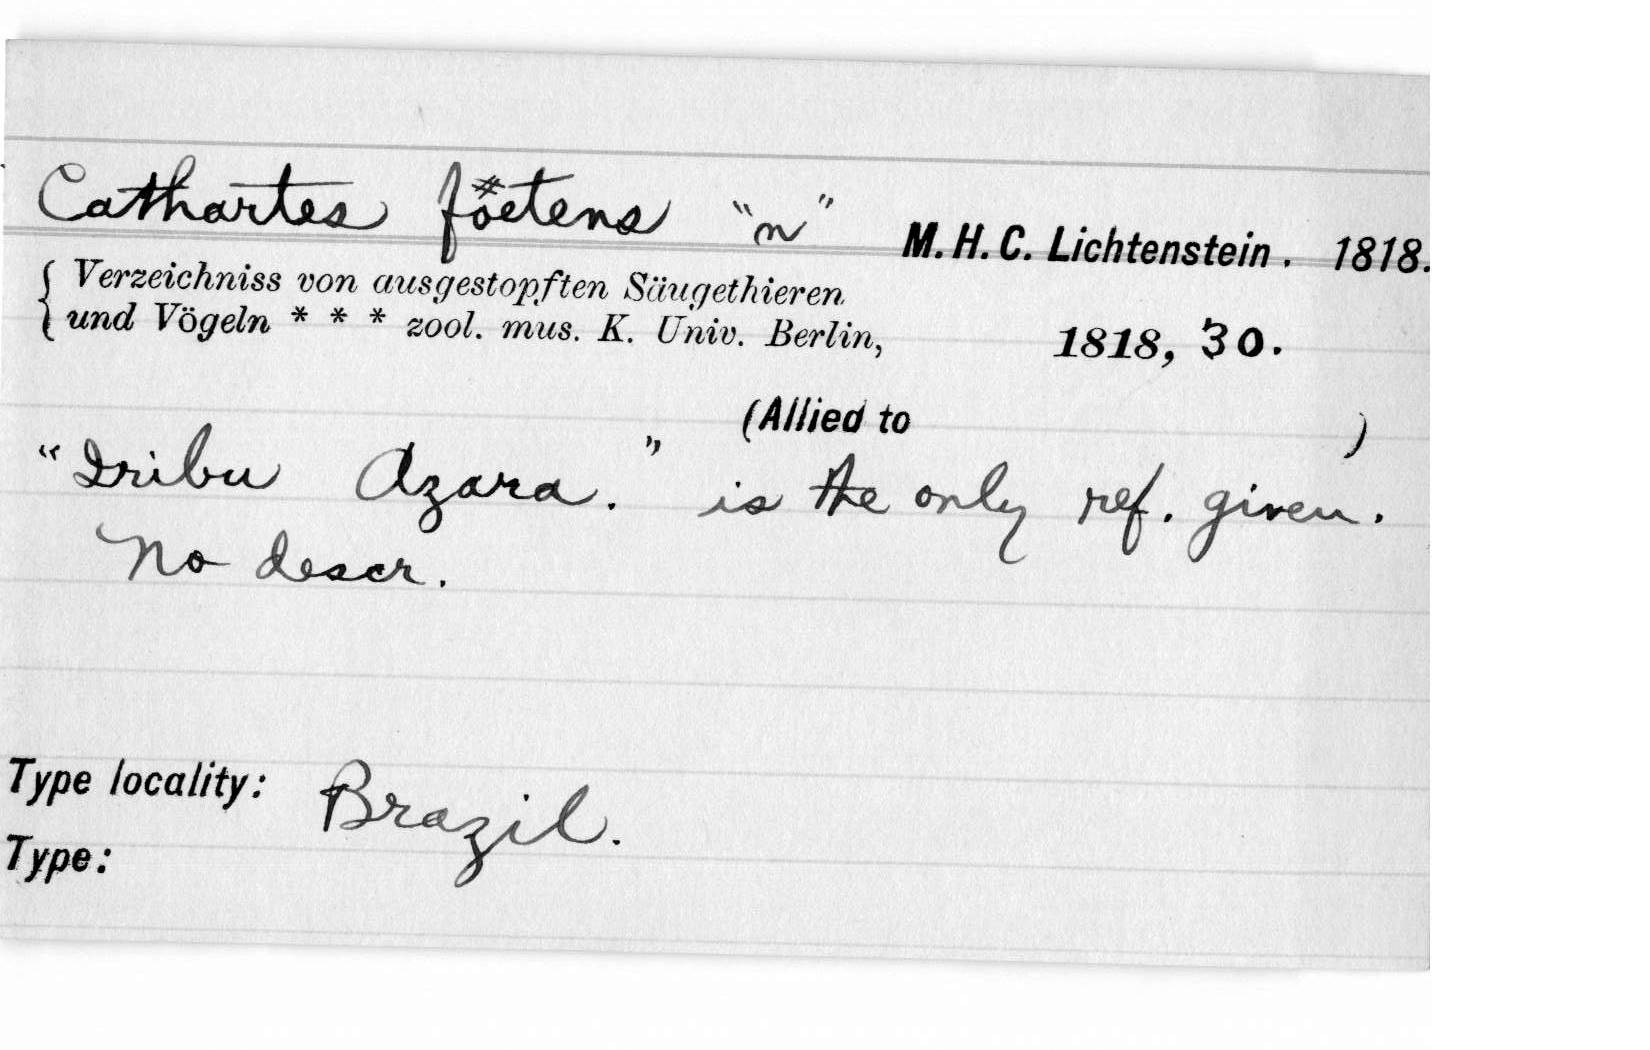 Cathartes föetens "n" M. H. C. Lichtenstein. 1818.
{ Verzeichniss von ausgestopften Säugethieren
{ und Vögeln * * * zool. mus. K. Univ. Berlin, 1818, 30.
(Allied to )
"Iribu Azara." is the only ref. given.
No descr.
Type locality: Brazil.
Type: